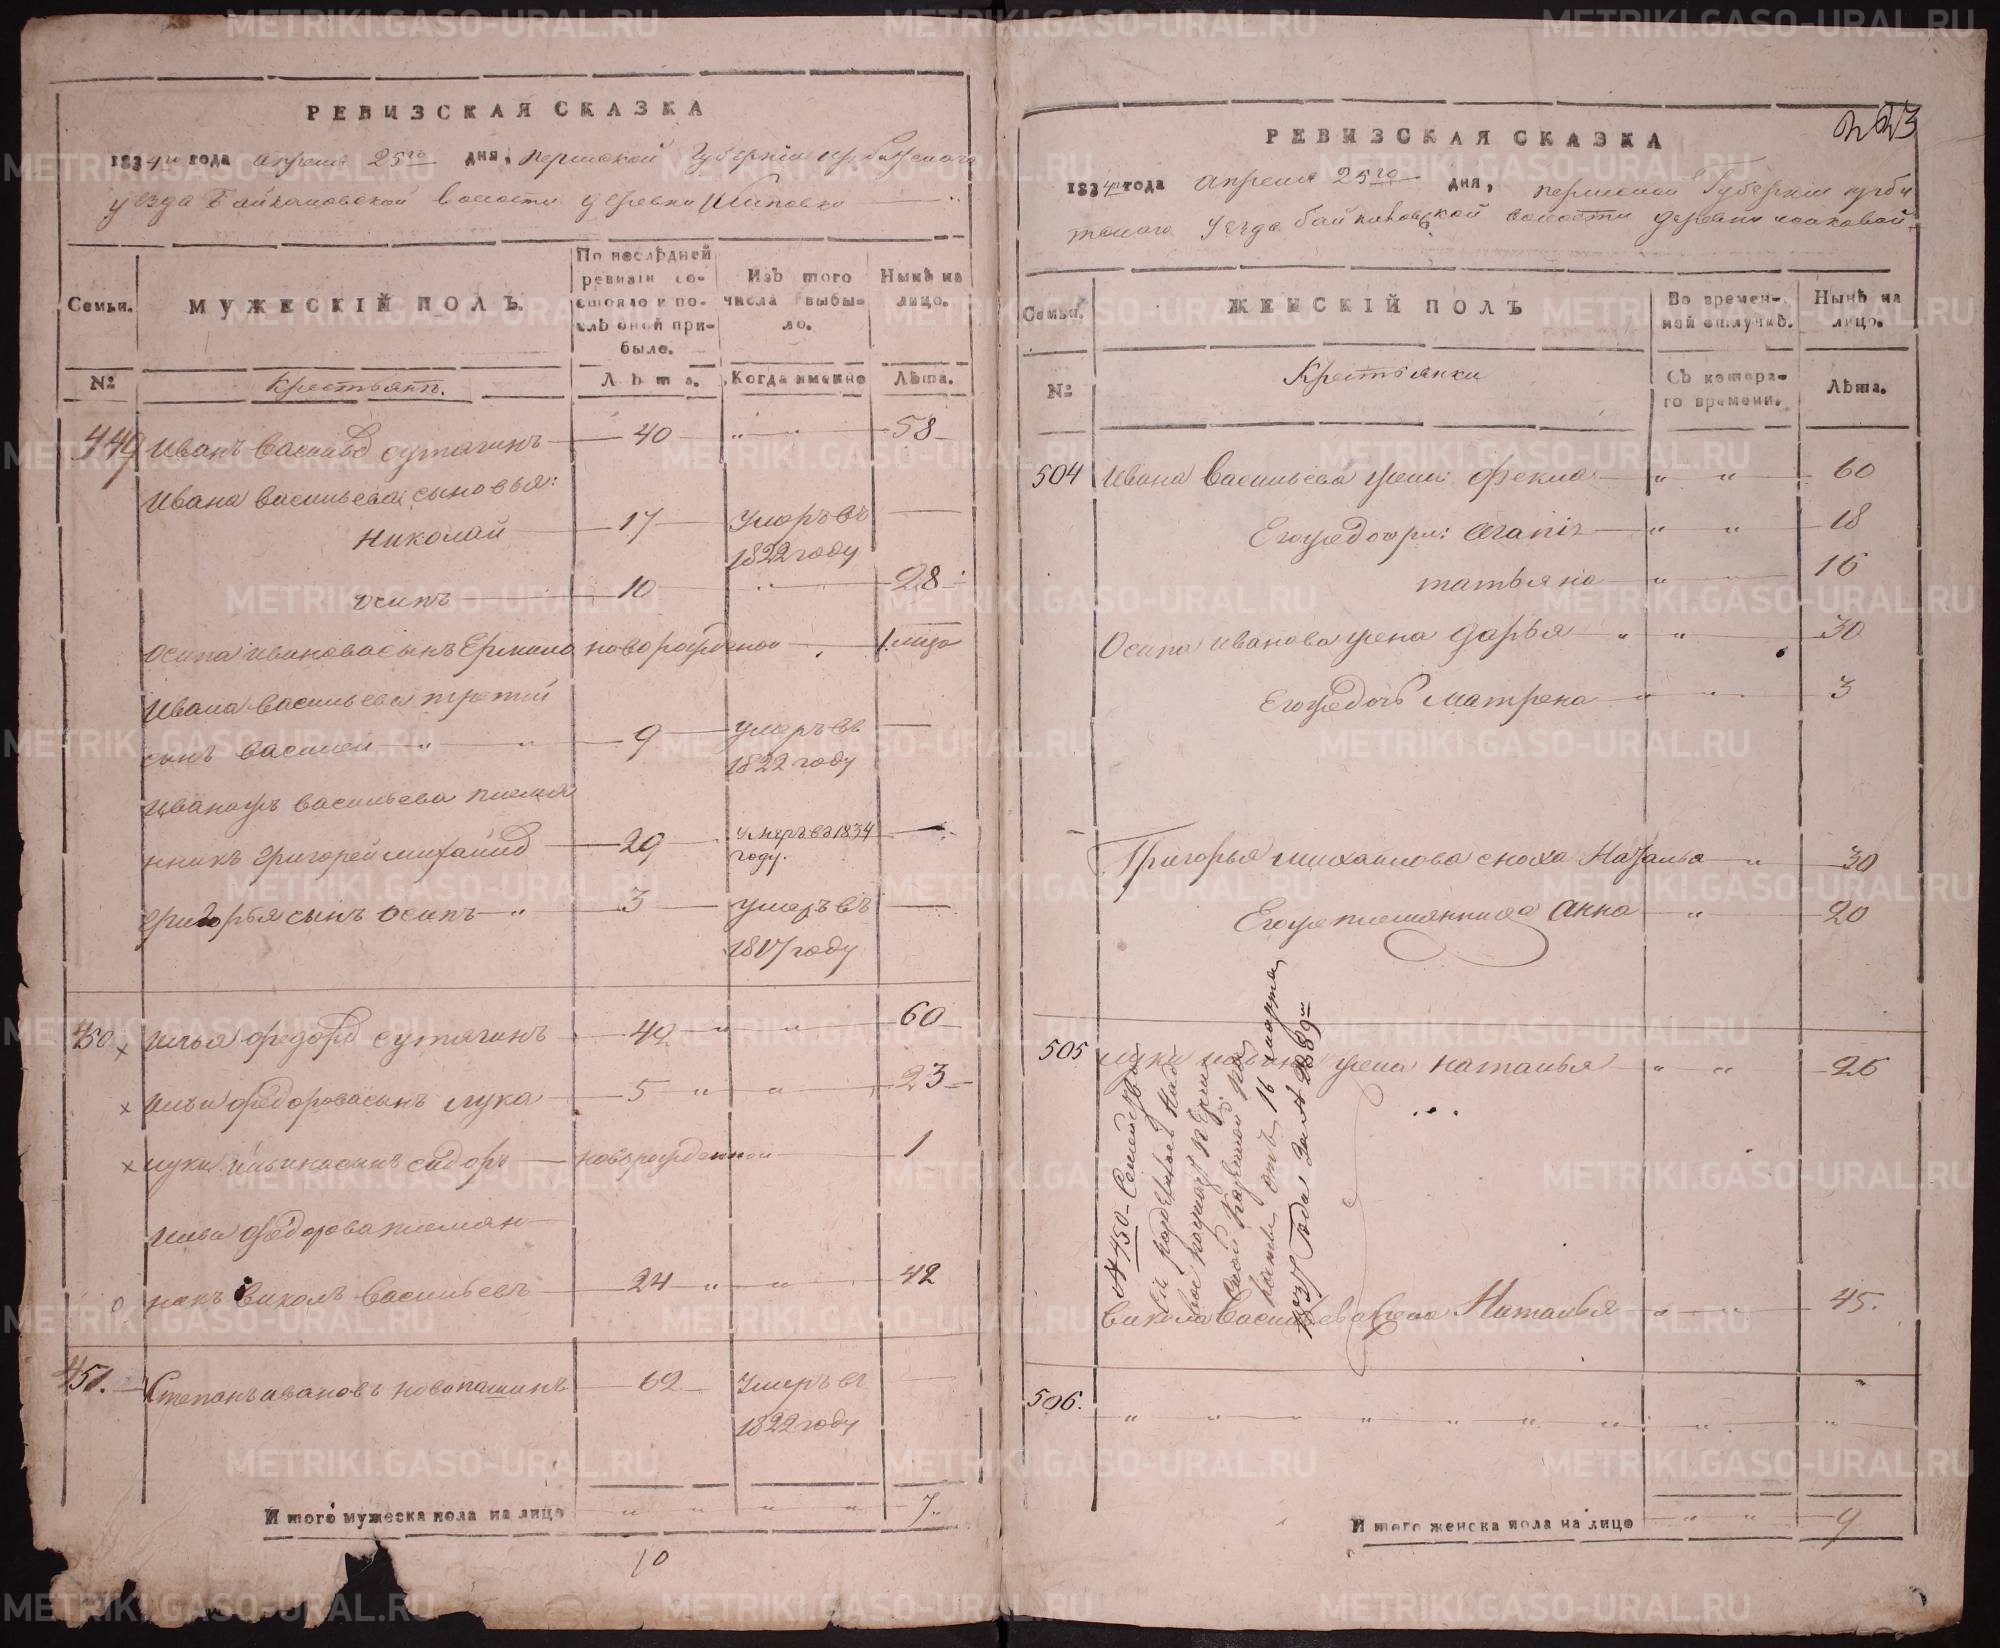 РЕВИЗСКАЯ СКАЗКА
1834го года апреля 25го дня, пермской Губернiи ирбитского
уезда Байкаловской волости деревни
Семьи. МУЖЕСКIЙ ПОЛЪ. По послѣдней ревизiи состояло и послѣ оной прибыло. Изъ того числа выбыло. Нынѣ на лицо.
№ Крестьянъ. Лѣта. Когда именно Лѣта.
449 Иванъ Васильевъ Сутягинъ 40 " " 58
Ивана Васильева сыновья:
Николай 17 Умеръ въ 1822 году
Осипъ 10 " 28
Осипа Иванова сынъ Ермило новорожденной 1. лицо
Ивана Васильева третей
сынъ Василей " " 9 умеръ въ 1822 году
Ивана жъ Васильева племя
нникъ Григорей Михайловъ 29 умеръ въ 1834 году.
Григорья сынъ Осипъ " 3 умеръ въ 1817 году
450 Илья Федоровъ Сутягинъ 42 " " 60
Ильи Федорова сынъ Лука 5 " " 23
Луки Ильина сынъ Сидоръ новорожденной 1
Ильи Федорова племян
никъ Викулъ Васильевъ 24 " " 42
451. Степанъ Ивановъ Новопашинъ 62 Умеръ въ 1822 году
Итого мужеска пола на лицо " " " " 7.
10
223
РЕВИЗСКАЯ СКАЗКА
1834го года апреля 25го дня, пермской Губернiи ирби
тского уезда байкаловской волости деревни
Семьи. ЖЕНСКIЙ ПОЛЪ Во временной отлучкѣ. Нынѣ на лицо.
№ Крестьянки Съ котораго времени. Лѣта.
504 Ивана Васильева жена Фекла " " 60
Его же дочри: Агапiя " " 18
Татьяна " " 16
Осипа Иванова жена Дарья " " 30
Его же дочь Матрена " " 3
Григорья Михайлова сноха Наталья " 30
Его же племянница Анна " 20
505 Луки Ильина жена Наталья " " 26
№ 450
отъ 16 марта
Года За № 2889м
Викула Васильева жена Наталья " " 45.
506. " " " " " " " " "
Итого женска пола на лицо " " 9
METRIKI.GASO-URAL.RU